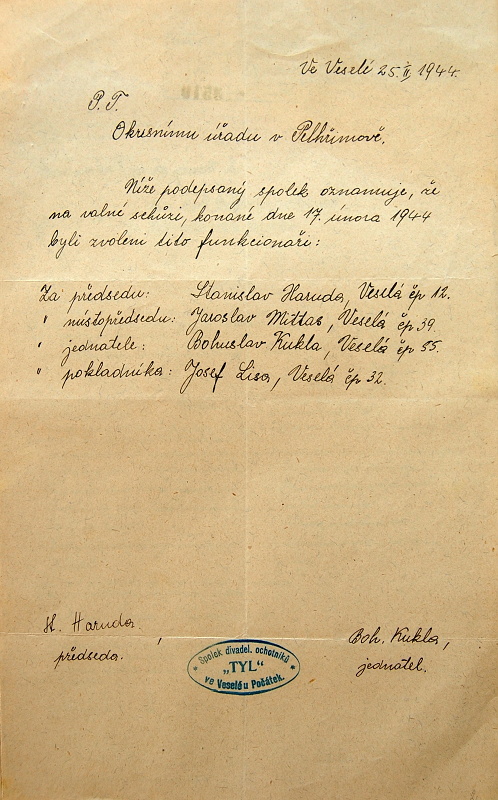 Ve Veselé 25./II. 1944.
P. T.
Okresnímu úřadu v Pelhřimově.
Níže podepsaný spolek oznamuje, že
na valné schůzi, konané dne 17. února 1944
byli zvoleni tito funkcionáři:
Za předsedu: Stanislav Haruda, Veselá čp 12.
" místopředsedu: Jaroslav Mittas, Veselá čp 39.
" jednatele: Bohuslav Kukla, Veselá čp 55.
" pokladníka: Josef Lisa, Veselá čp 32.
St. Haruda.
předseda.
Boh. Kukla,
jednatel.
Spolek divadel. ochotníků
„TYL"
ve Veselé u Počátek.